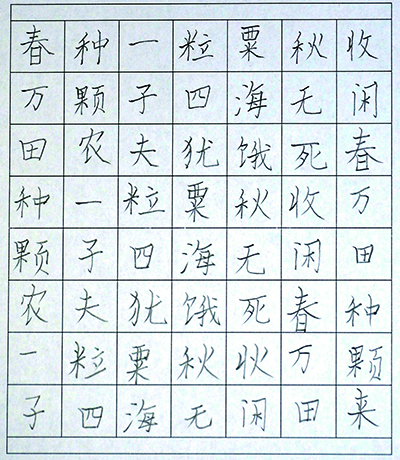 春种一粒粟秋收
万颗子四海无闲
田农夫犹饿死春
种一粒粟秋收万
颗子四海无闲田
农夫犹饿死春种
一粒粟秋收万颗
子四海无闲田来